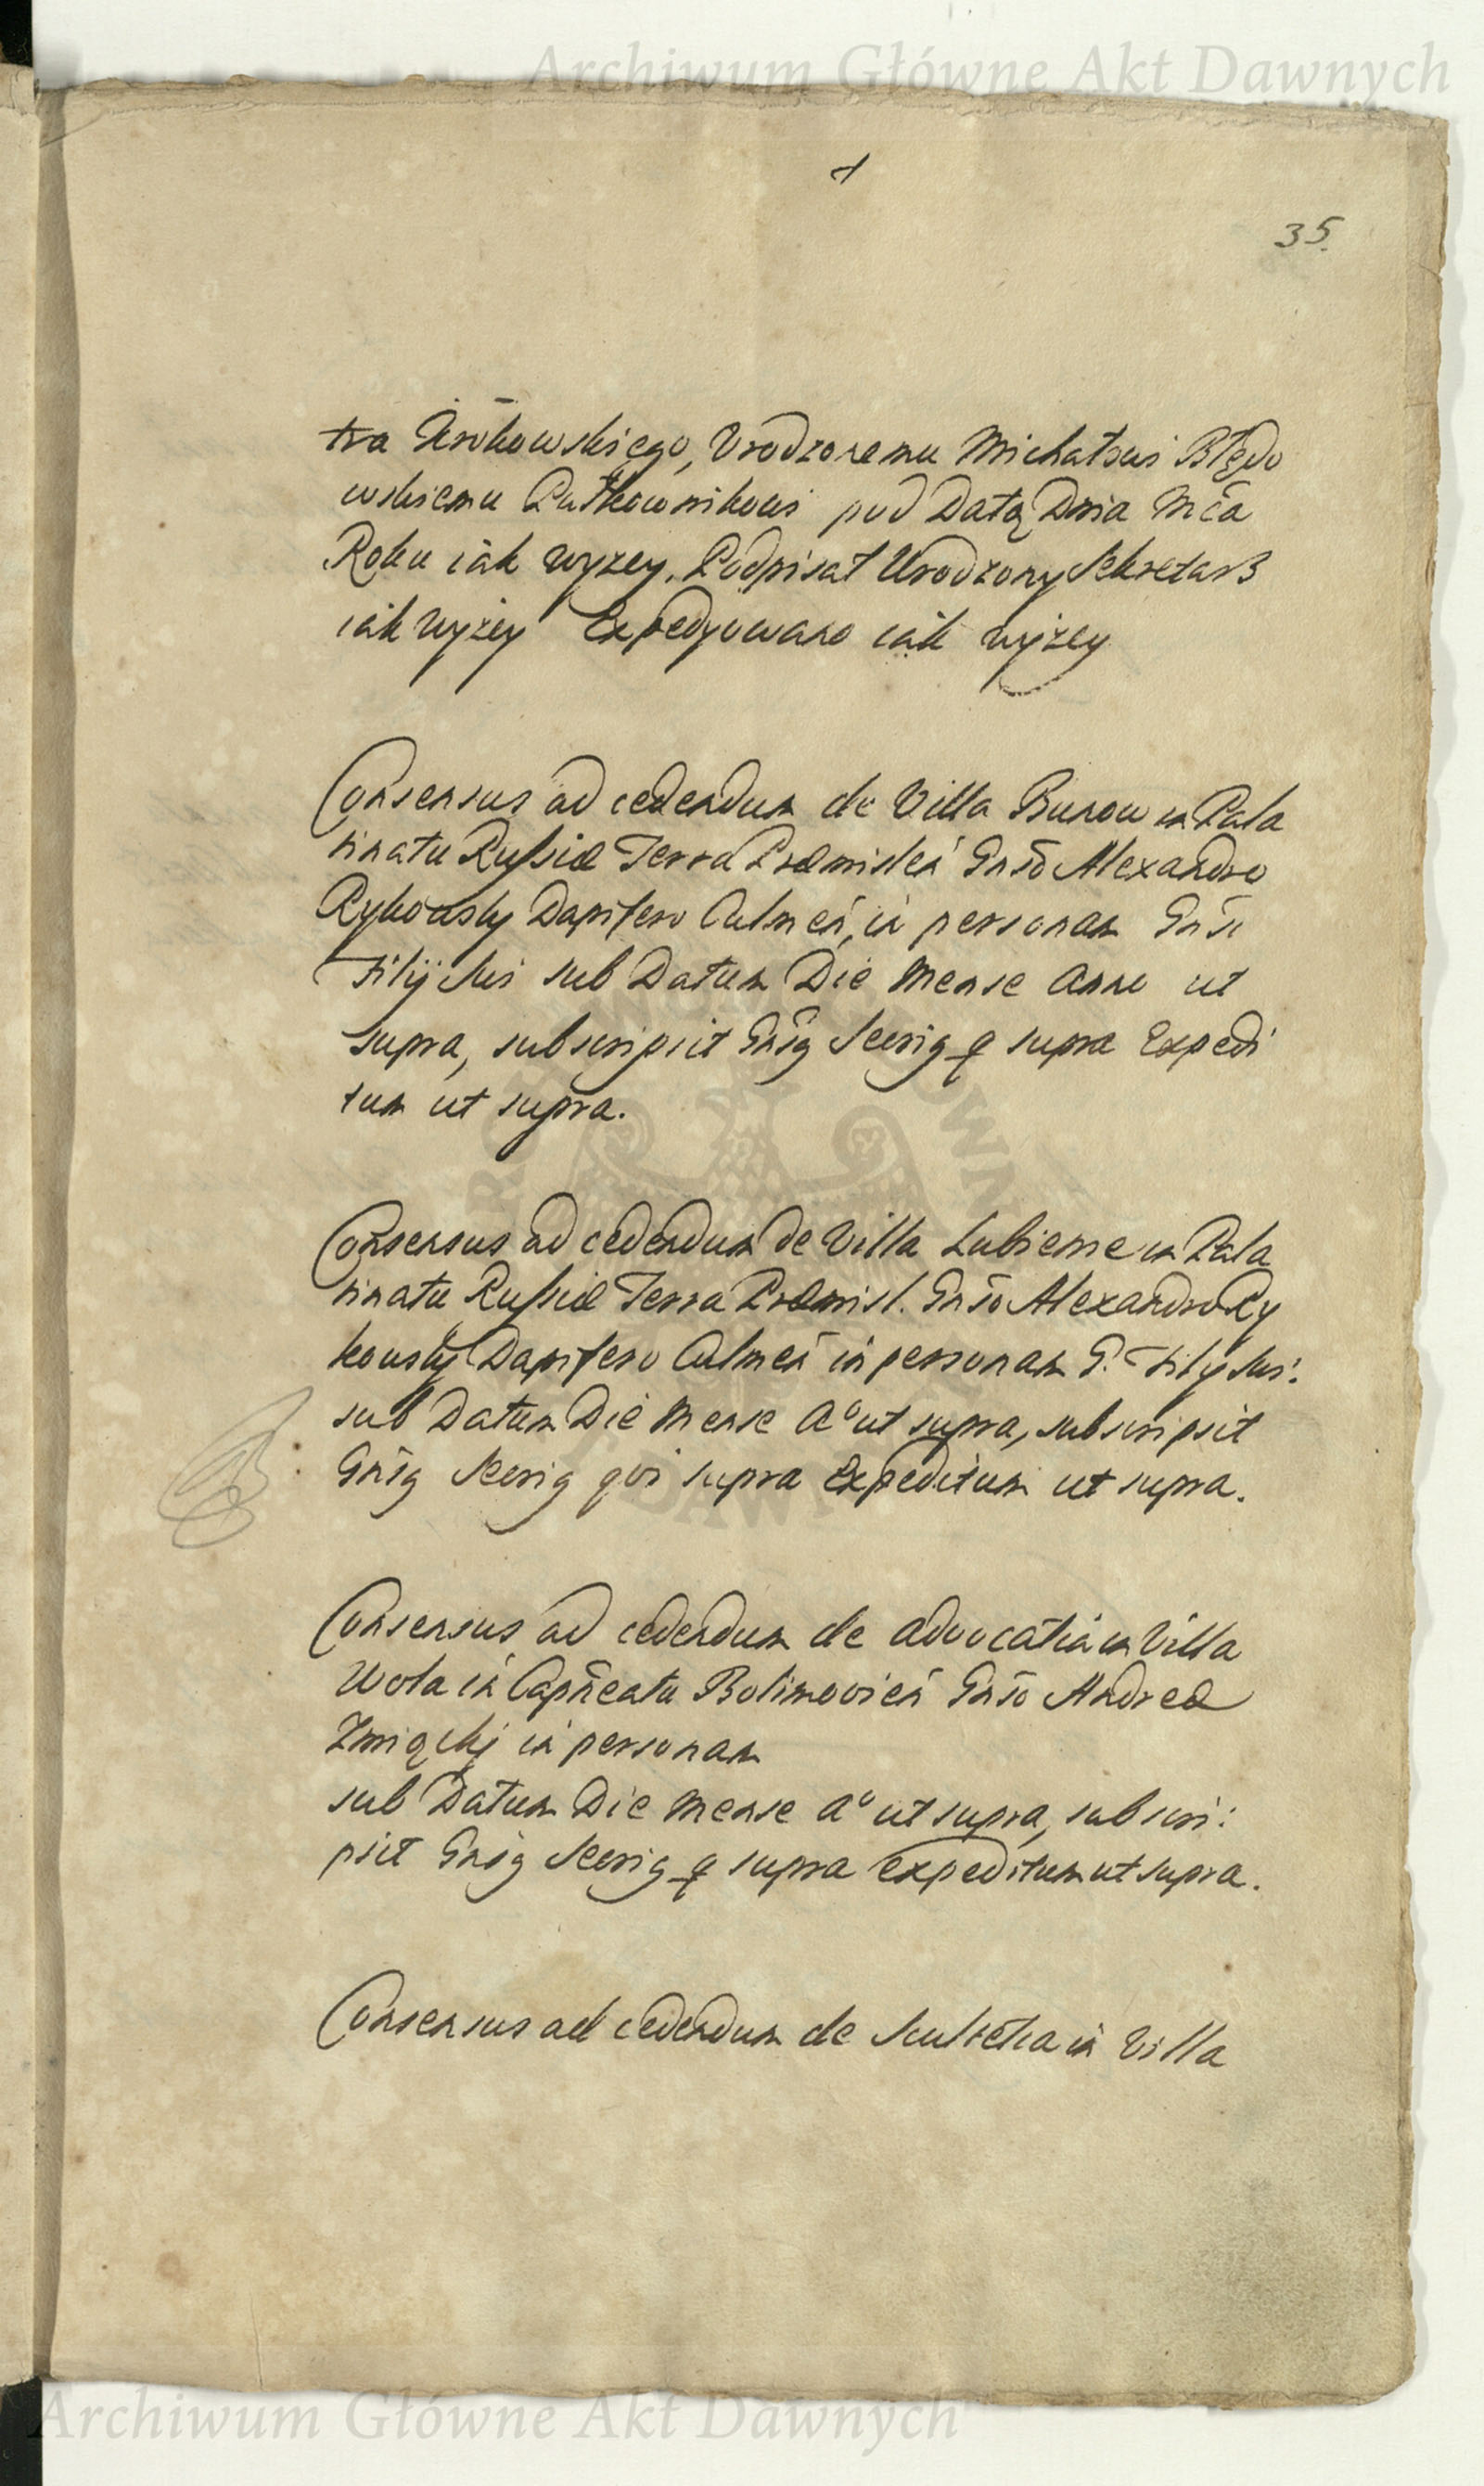 Archiwum Główne Akt Dawnych
35.
tra Urokowskiego, Urodzonemu Michałowi Błędo
wskiemu Pułkownikowi pod Datą Dnia Mca
Roku iak wyzey. Podpisał Urodzony Sekretarz
iak wyżey Expedyowano iak wyżey
Consensus ad cedendum de Villa Bunow in Pala
tinatu Russiæ Terra Præmisleń Gnso Alexandro
Rykowsky Dapifero Culmeń, in personam Gnsi
Filij sui sub Datum Die Mense Anno ut
supra, subscripsit Gnsg Secrig q supra Expedi
tum ut supra.
Consensus ad cedendum de Villa Lubienie in Pala
tinatu Russiæ Terra Præmisl. Gnso Alexandro Ry
kowsky Dapifero Culmeń in personam G. Filij sui:
sub Datum Die Mense Aº ut supra, subscripsit
Gnsg Secrig qui supra Expeditum ut supra.
Consensus ad cedendum de advocatia in Villa
Wola in Capneatu Bolimovień Gnso Andreæ
in personam
sub Datum Die Mense Aº ut supra, subscri:
psit Gnsg Secrig q supra expeditum ut supra.
Consensus ad cedendum de Scultetia in Villa
Archiwum Główne Akt Dawnych